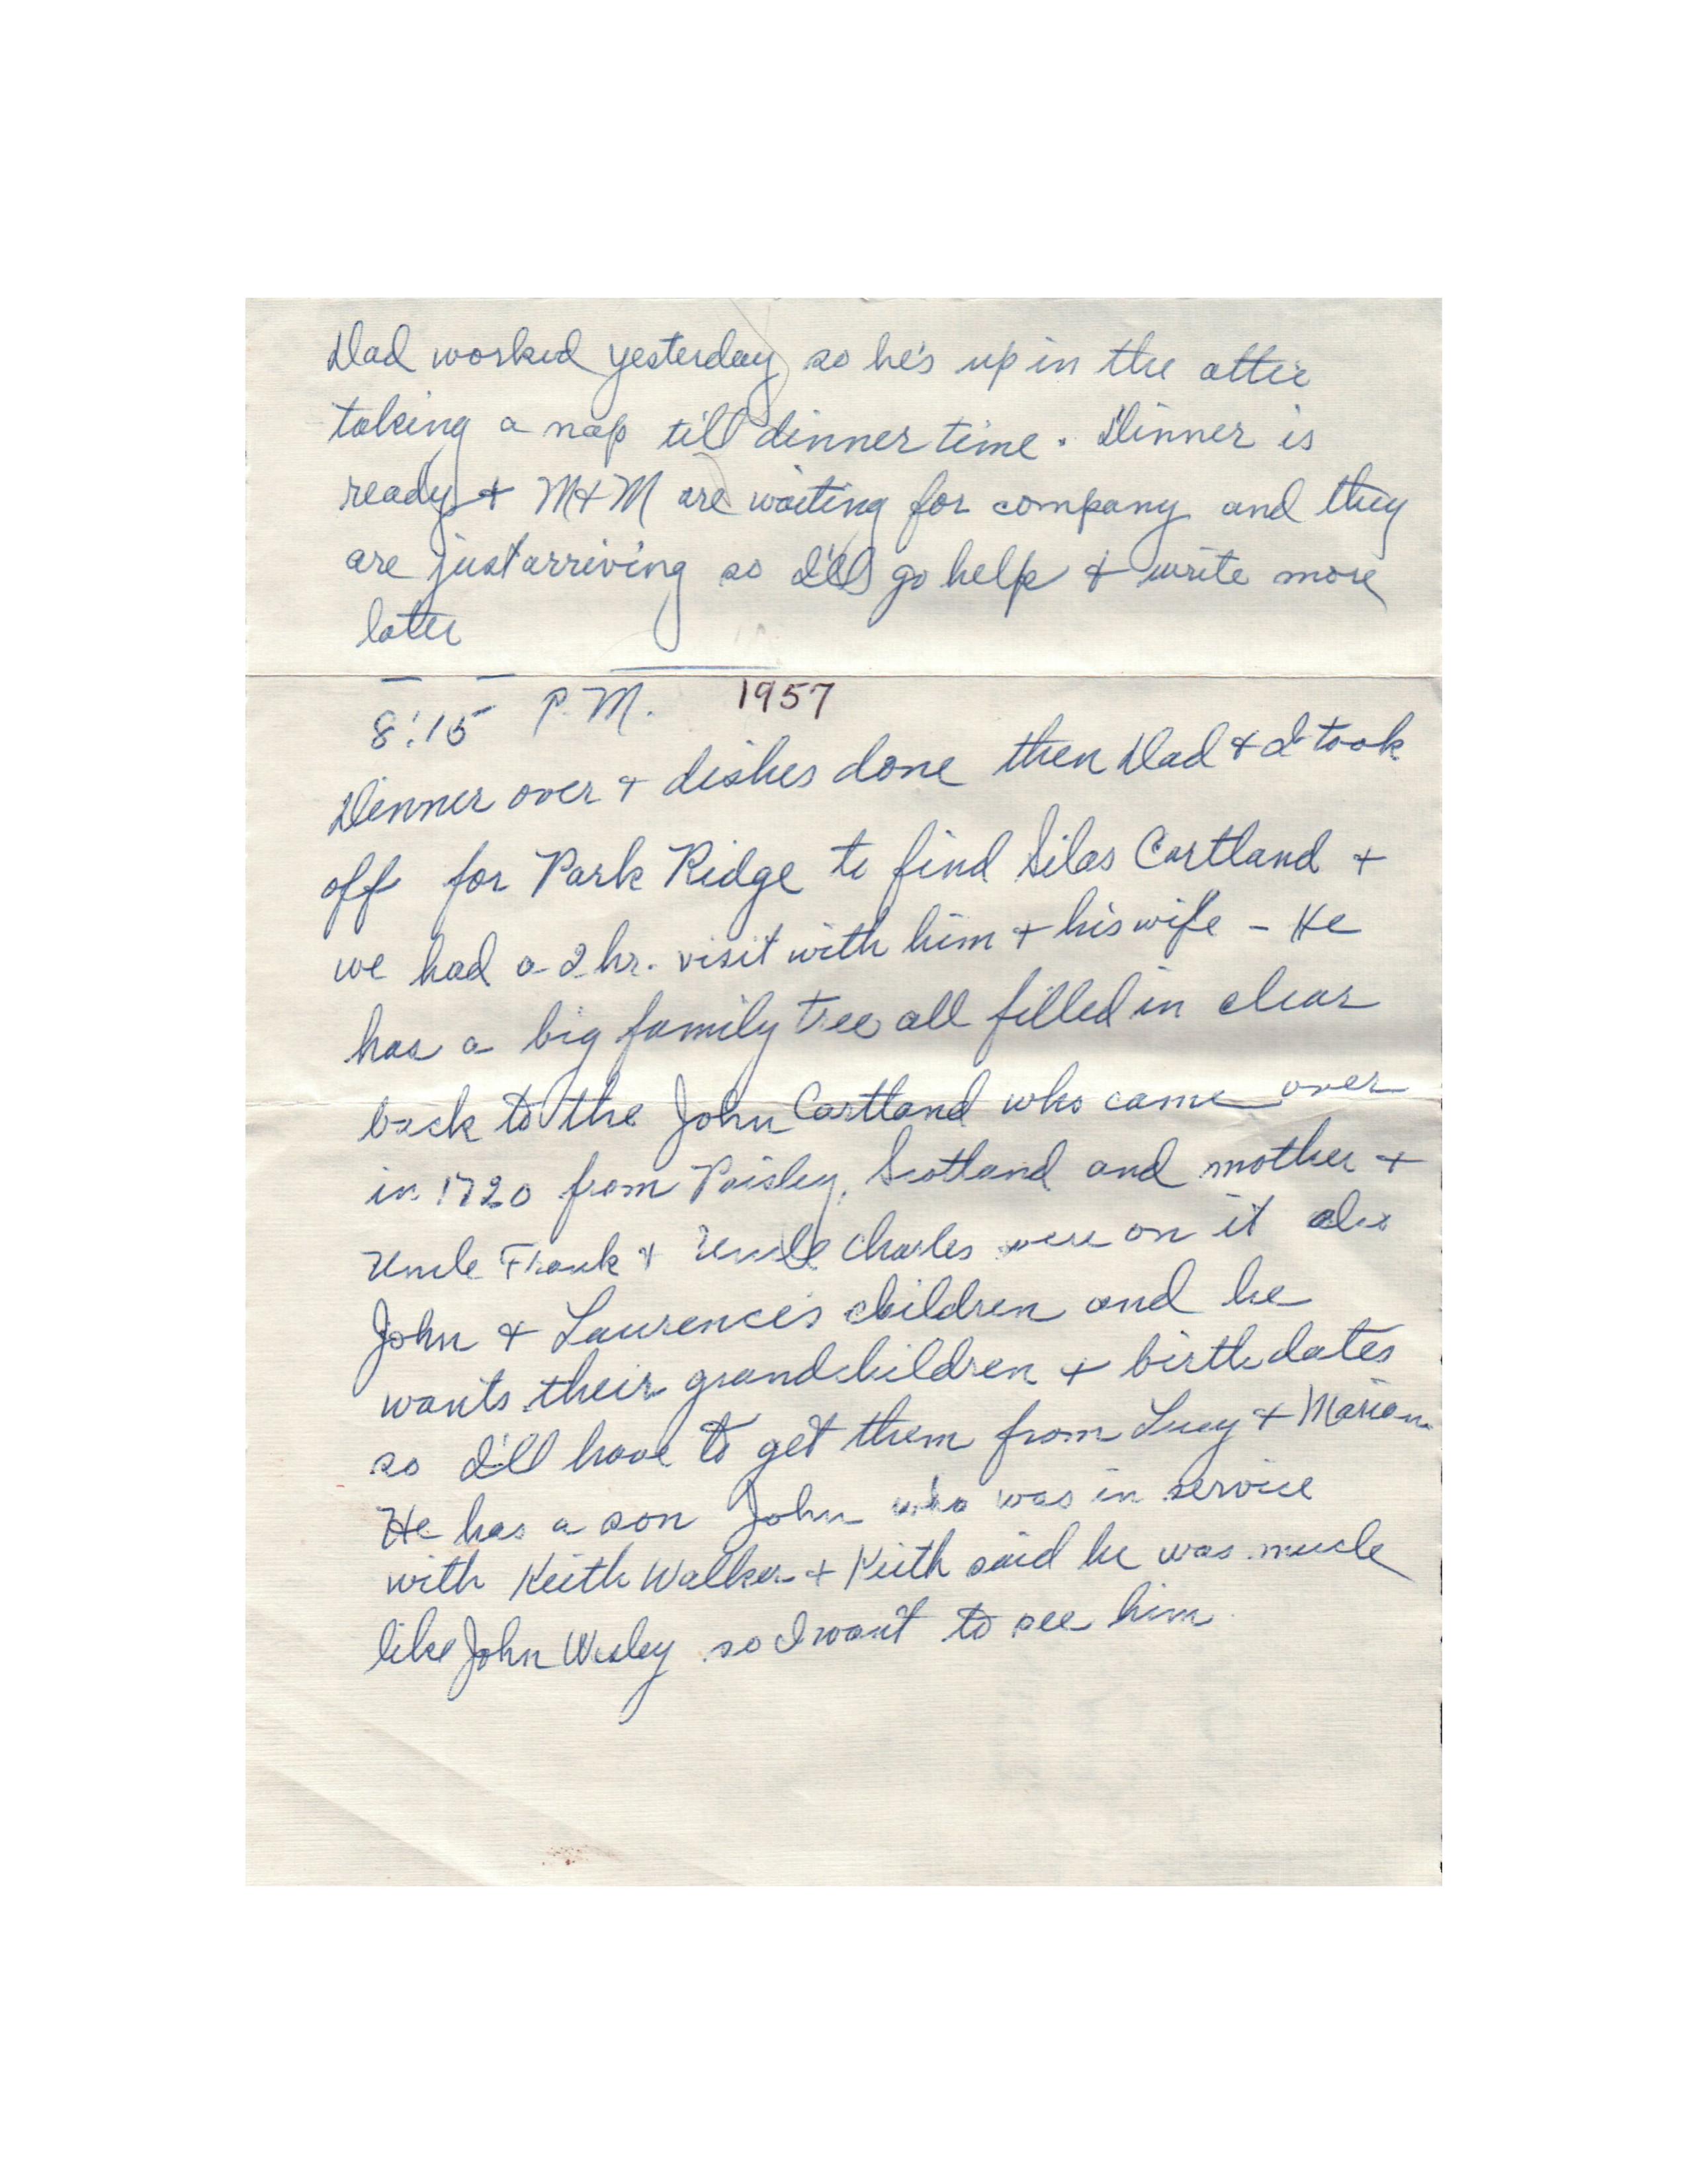 Dad worked yesterday so he's up in the attic
taking a nap till dinner time. Dinner is
ready + M+M are waiting for company and they
are just arriving so I'll go help + write more
later
8:15 P.M. 1957
Dinner over + dishes done then Dad + I took
off for Park Ridge to find Silas Cartland +
we had a 2 hr. visit with him + his wife - He
has a big family tree all filled in clear
back to the John Cartland who came over
in 1720 from Paisley, Scotland and mother +
Uncle Frank + Uncle Charles were on it also
John + Laurence's children and he
wants their grandchildren + birth dates
so I'll have to get them from Lucy + Marion
He has a son John who was in service
with Keith Walker + Keith said he was much
like John Wesley so I want to see him